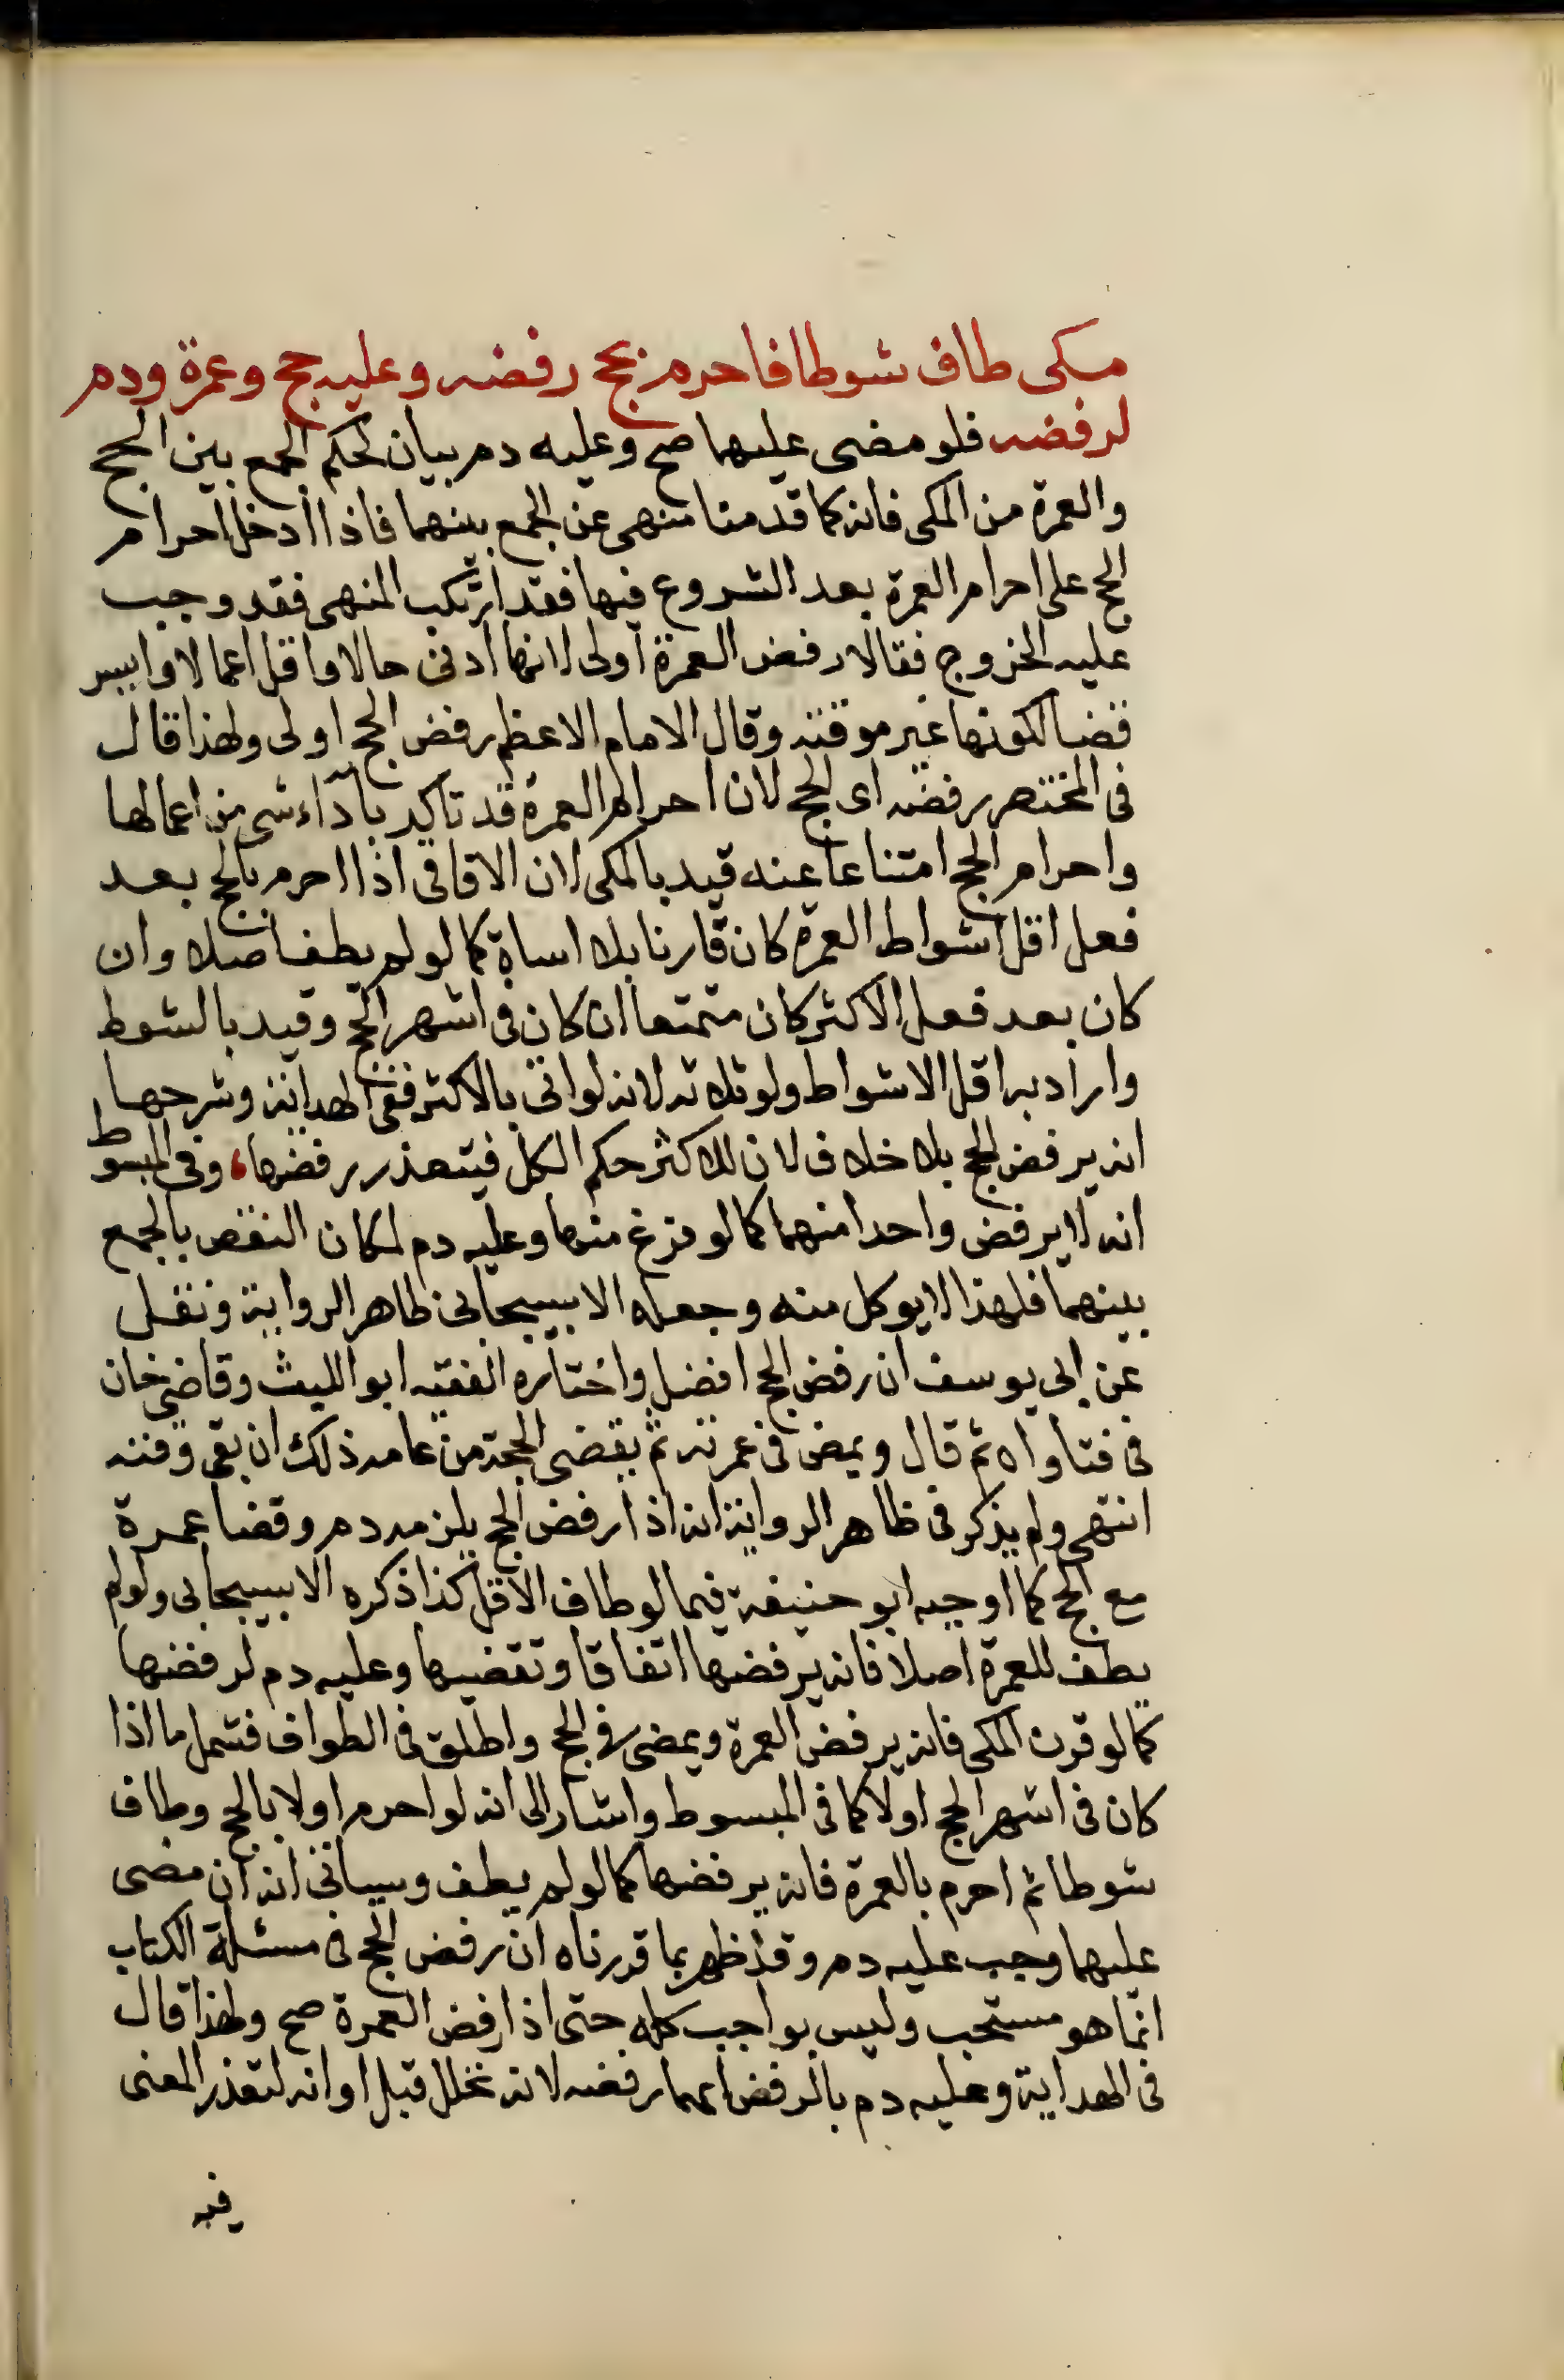 مكى طاف شوطا فاحرم بحج رفضه وعليه حج وعمرة ودم
لرفضه فلو مضى عليهما صح وعليه دم بيان لحكم الجمع بين الحج
والعمرة من المكى فانه كما قدمنا منهى عن الجمع بينهما فاذا ادخل احرام
الحج على احرام العمرة بعد الشروع فيها فقد ارتكب المنهى فقد وجب
عليه الخروج فقالا رفض العمرة اولى لانها ادنى حالا واقل اعمالا وايسر
قضا لكونها غير موقتة وقال الامام الاعظم رفض الحج اولى ولهذا قال
فى المختصر رفضه اى الحج لان احرام العمرة قد تاكد باداء شى من اعمالها
واحرام الحج امتناعا عنه قيد بالمكى لان الافاقى اذا احرم بالحج بعد
فعل اقل اشواط العمرة كان قارنا بلا اساة كما لو لم يطف اصلا وان
كان بعد فعل الاكثر كان متمتعا ان كان فى اشهر الحج وقيد بالشوط
واراد به اقل الاشواط ولو ثلاثة لانه لو اتى بالاكثر ففى الهداية وشرحها
انه يرفض الحج بلا خلاف لان للاكثر حكم الكل فيتعذر رفضها، وفى المبسوط
انه لا يرفض واحدا منهما كما لو فرغ منها وعليه دم لمكان النقص بالجمع
بينهما فلهذا لا يوكل منه وجعله الاسبيجابى ظاهر الرواية ونقل
عن ابى يوسف ان رفض الحج افضل واختاره الفقيه ابو الليث وقاضى خان
فى فتاواه ثم قال ويمض فى عمرته ثم يقضى الحجة من عامه ذلك ان بقى وقته
انتهى ولم يذكر فى ظاهر الرواية انه اذا رفض الحج يلزمه دم وقضا عمرة
مع الحج كما اوجبه ابو حنيفة فيما لو طاف الاقل كذا ذكره الاسبيجابى ولو لم
يطف للعمرة اصلا فانه يرفضها اتفاقا وتقضيها وعليه دم لرفضها
كما لو قرن المكى فانه يرفض العمرة ويمضى فى الحج واطلق فى الطواف فشمل ما اذا
كان فى اشهر الحج اولا كما فى المبسوط واشار الى انه لو احرم اولا بالحج وطاف
شوطا ثم احرم بالعمرة فانه يرفضها كما لو لم يطف وسياتى انه ان مضى
عليهما وجب عليه دم وقد ظهر بما قررناه ان رفض الحج فى مسئلة الكتاب
انما هو مستحب وليس بواجب كله حتى اذا رفض العمرة صح ولهذا قال
فى الهداية وعليه دم بالرفض ايهما رفضه لانه تحلل قبل اوانه لتعذر المضى
فيه